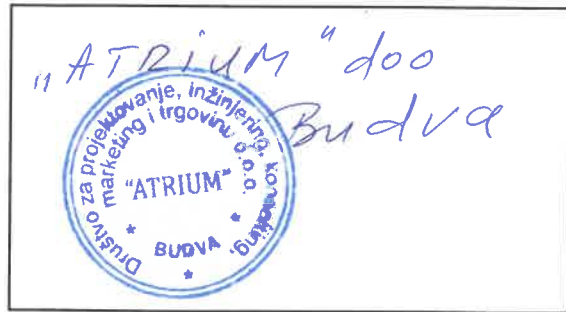 "ATRIUM" doo
Budva
Društvo za projektovanje, inžinjering, konsalting,
marketing i trgovinu d.o.o.
"ATRIUM"
* BUDVA *
*